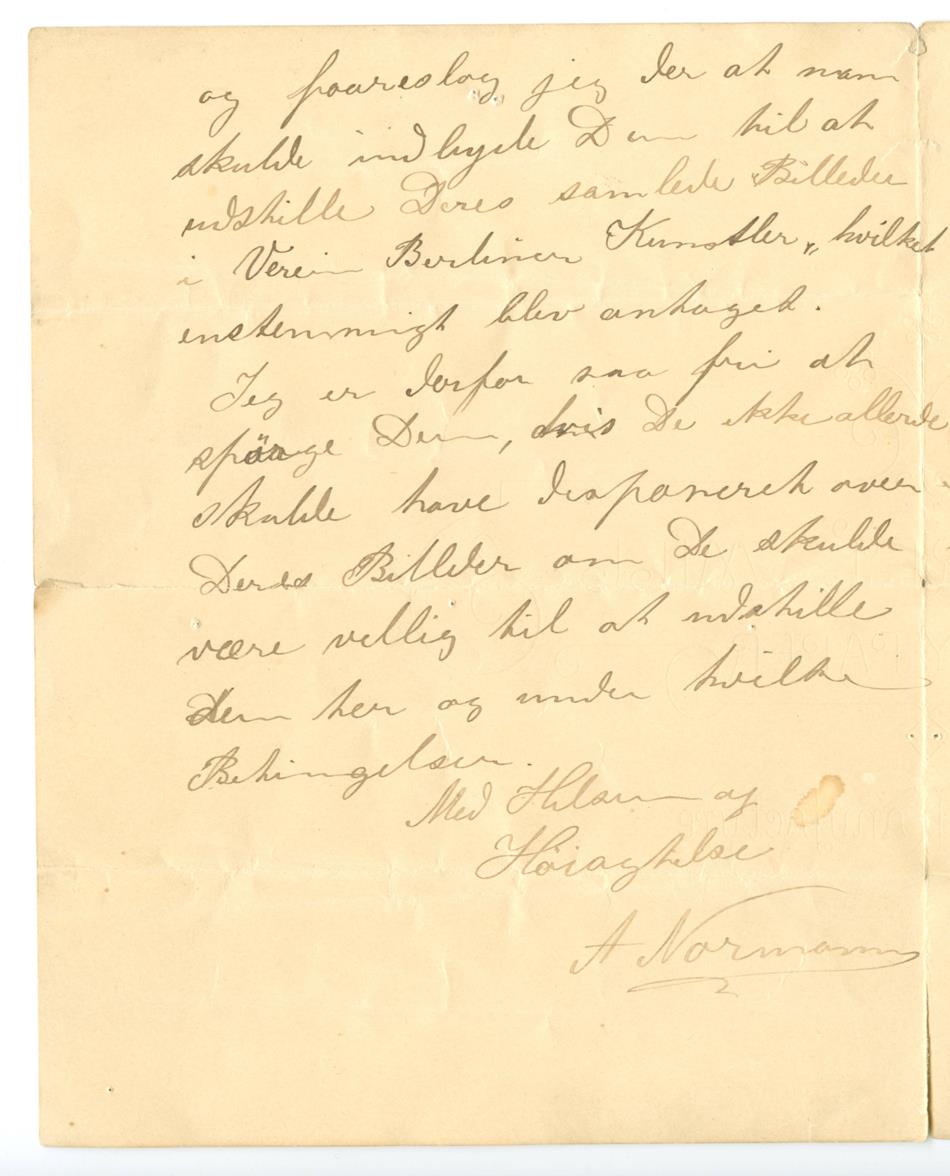 og foareslog jeg der at man
skulde indbyde Dem til at
udstille Deres samlede Billeder
i Verein Berliner Kunstler, hvilket
enstemmigt blev antaget.
Jeg er derfor saa fri at
spörge Dem, hvis De ikke allerede
skulde have disponeret over
Deres Billeder om De skulde
være villig til at udstille
Dem her og under hvilke
Betingelser.
Med Hilsen og
Høiagtelse
A Normann